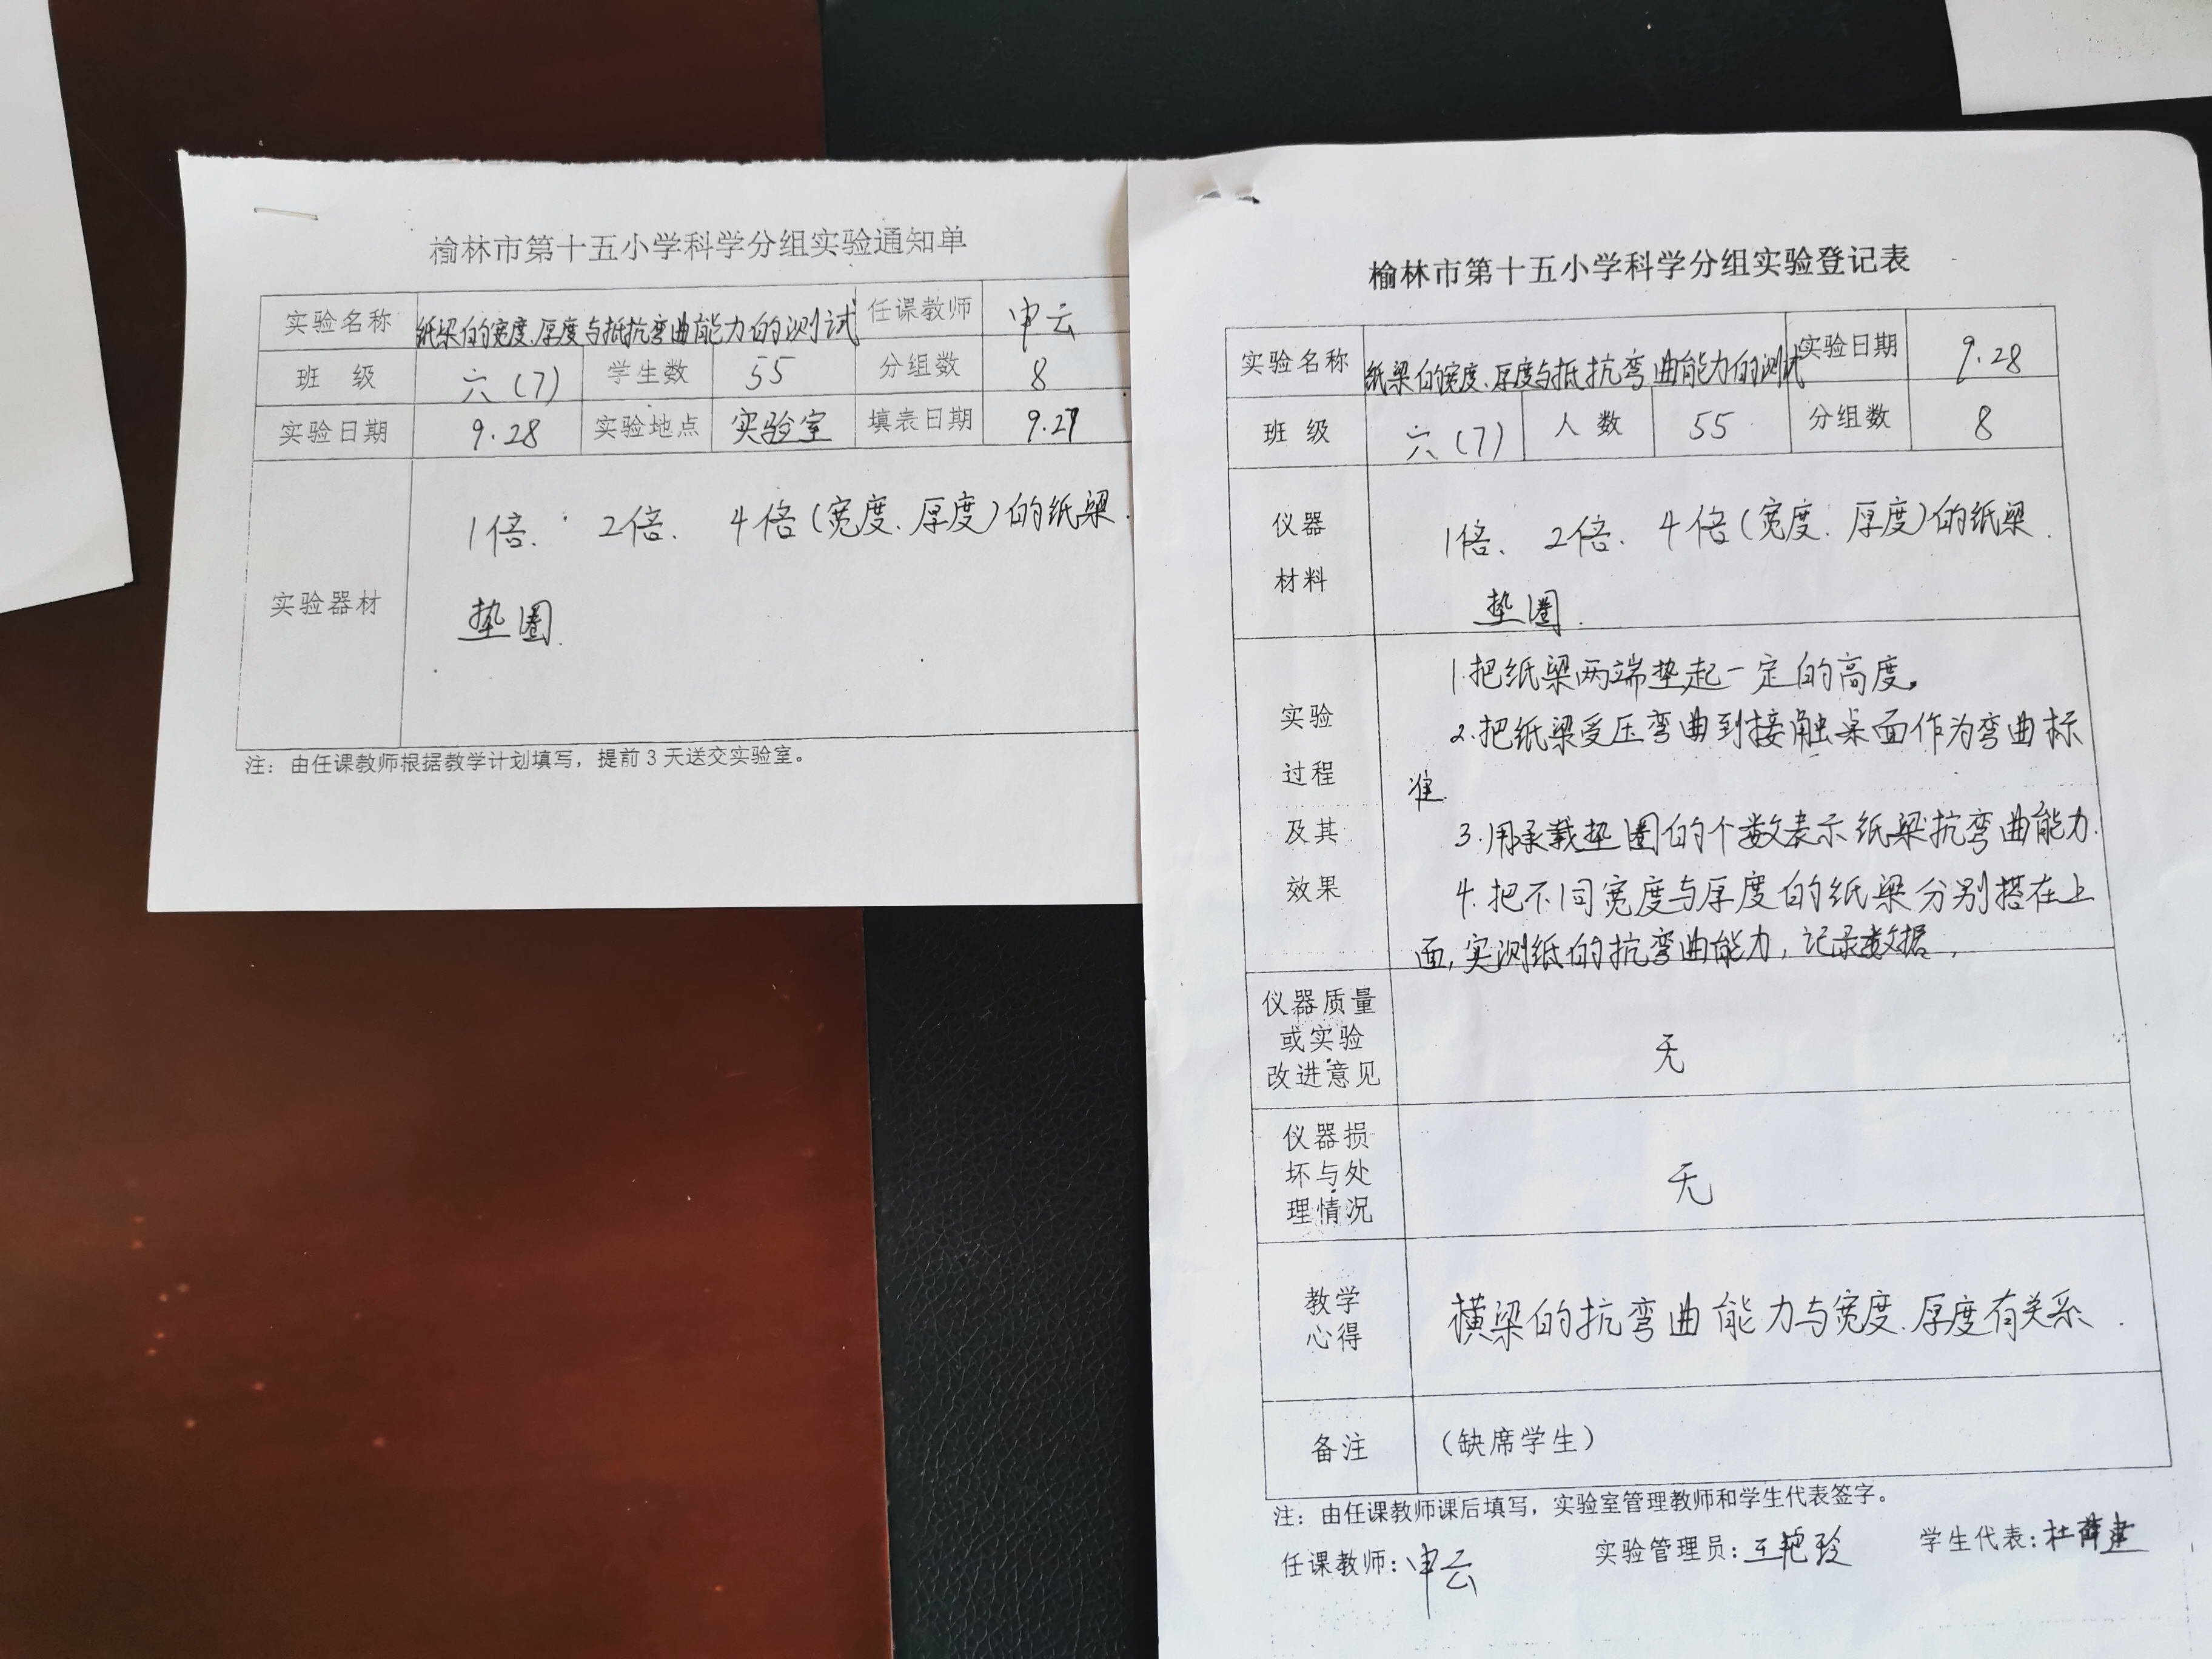 榆林市第十五小学科学分组实验通知单
实验名称 纸梁的宽度、厚度与抵抗弯曲能力的测试 任课教师 申云
班 级 六(7) 学生数 55 分组数 8
实验日期 9.28 实验地点 实验室 填表日期 9.27
实验器材
1倍、2倍、4倍(宽度、厚度)的纸梁.
垫圈.
注：由任课教师根据教学计划填写，提前3天送交实验室。
榆林市第十五小学科学分组实验登记表
实验名称 纸梁的宽度、厚度与抵抗弯曲能力的测试 实验日期 9.28
班 级 六(7) 人 数 55 分组数 8
仪器
材料
1倍、2倍、4倍(宽度、厚度)的纸梁.
垫圈.
实验
过程
及其
效果
1.把纸梁两端垫起一定的高度。
2.把纸梁受压弯曲到接触桌面作为弯曲标
准.
3.用承载垫圈的个数表示纸梁抗弯曲能力.
4.把不同宽度与厚度的纸梁分别搭在上
面,实测纸的抗弯曲能力,记录数据,
仪器质量
或实验
改进意见
无
仪器损
坏与处
理情况
无
教学
心得
横梁的抗弯曲能力与宽度、厚度有关系.
备注 （缺席学生）
注：由任课教师课后填写，实验室管理教师和学生代表签字。
任课教师：申云 实验管理员：王艳玲 学生代表：杜